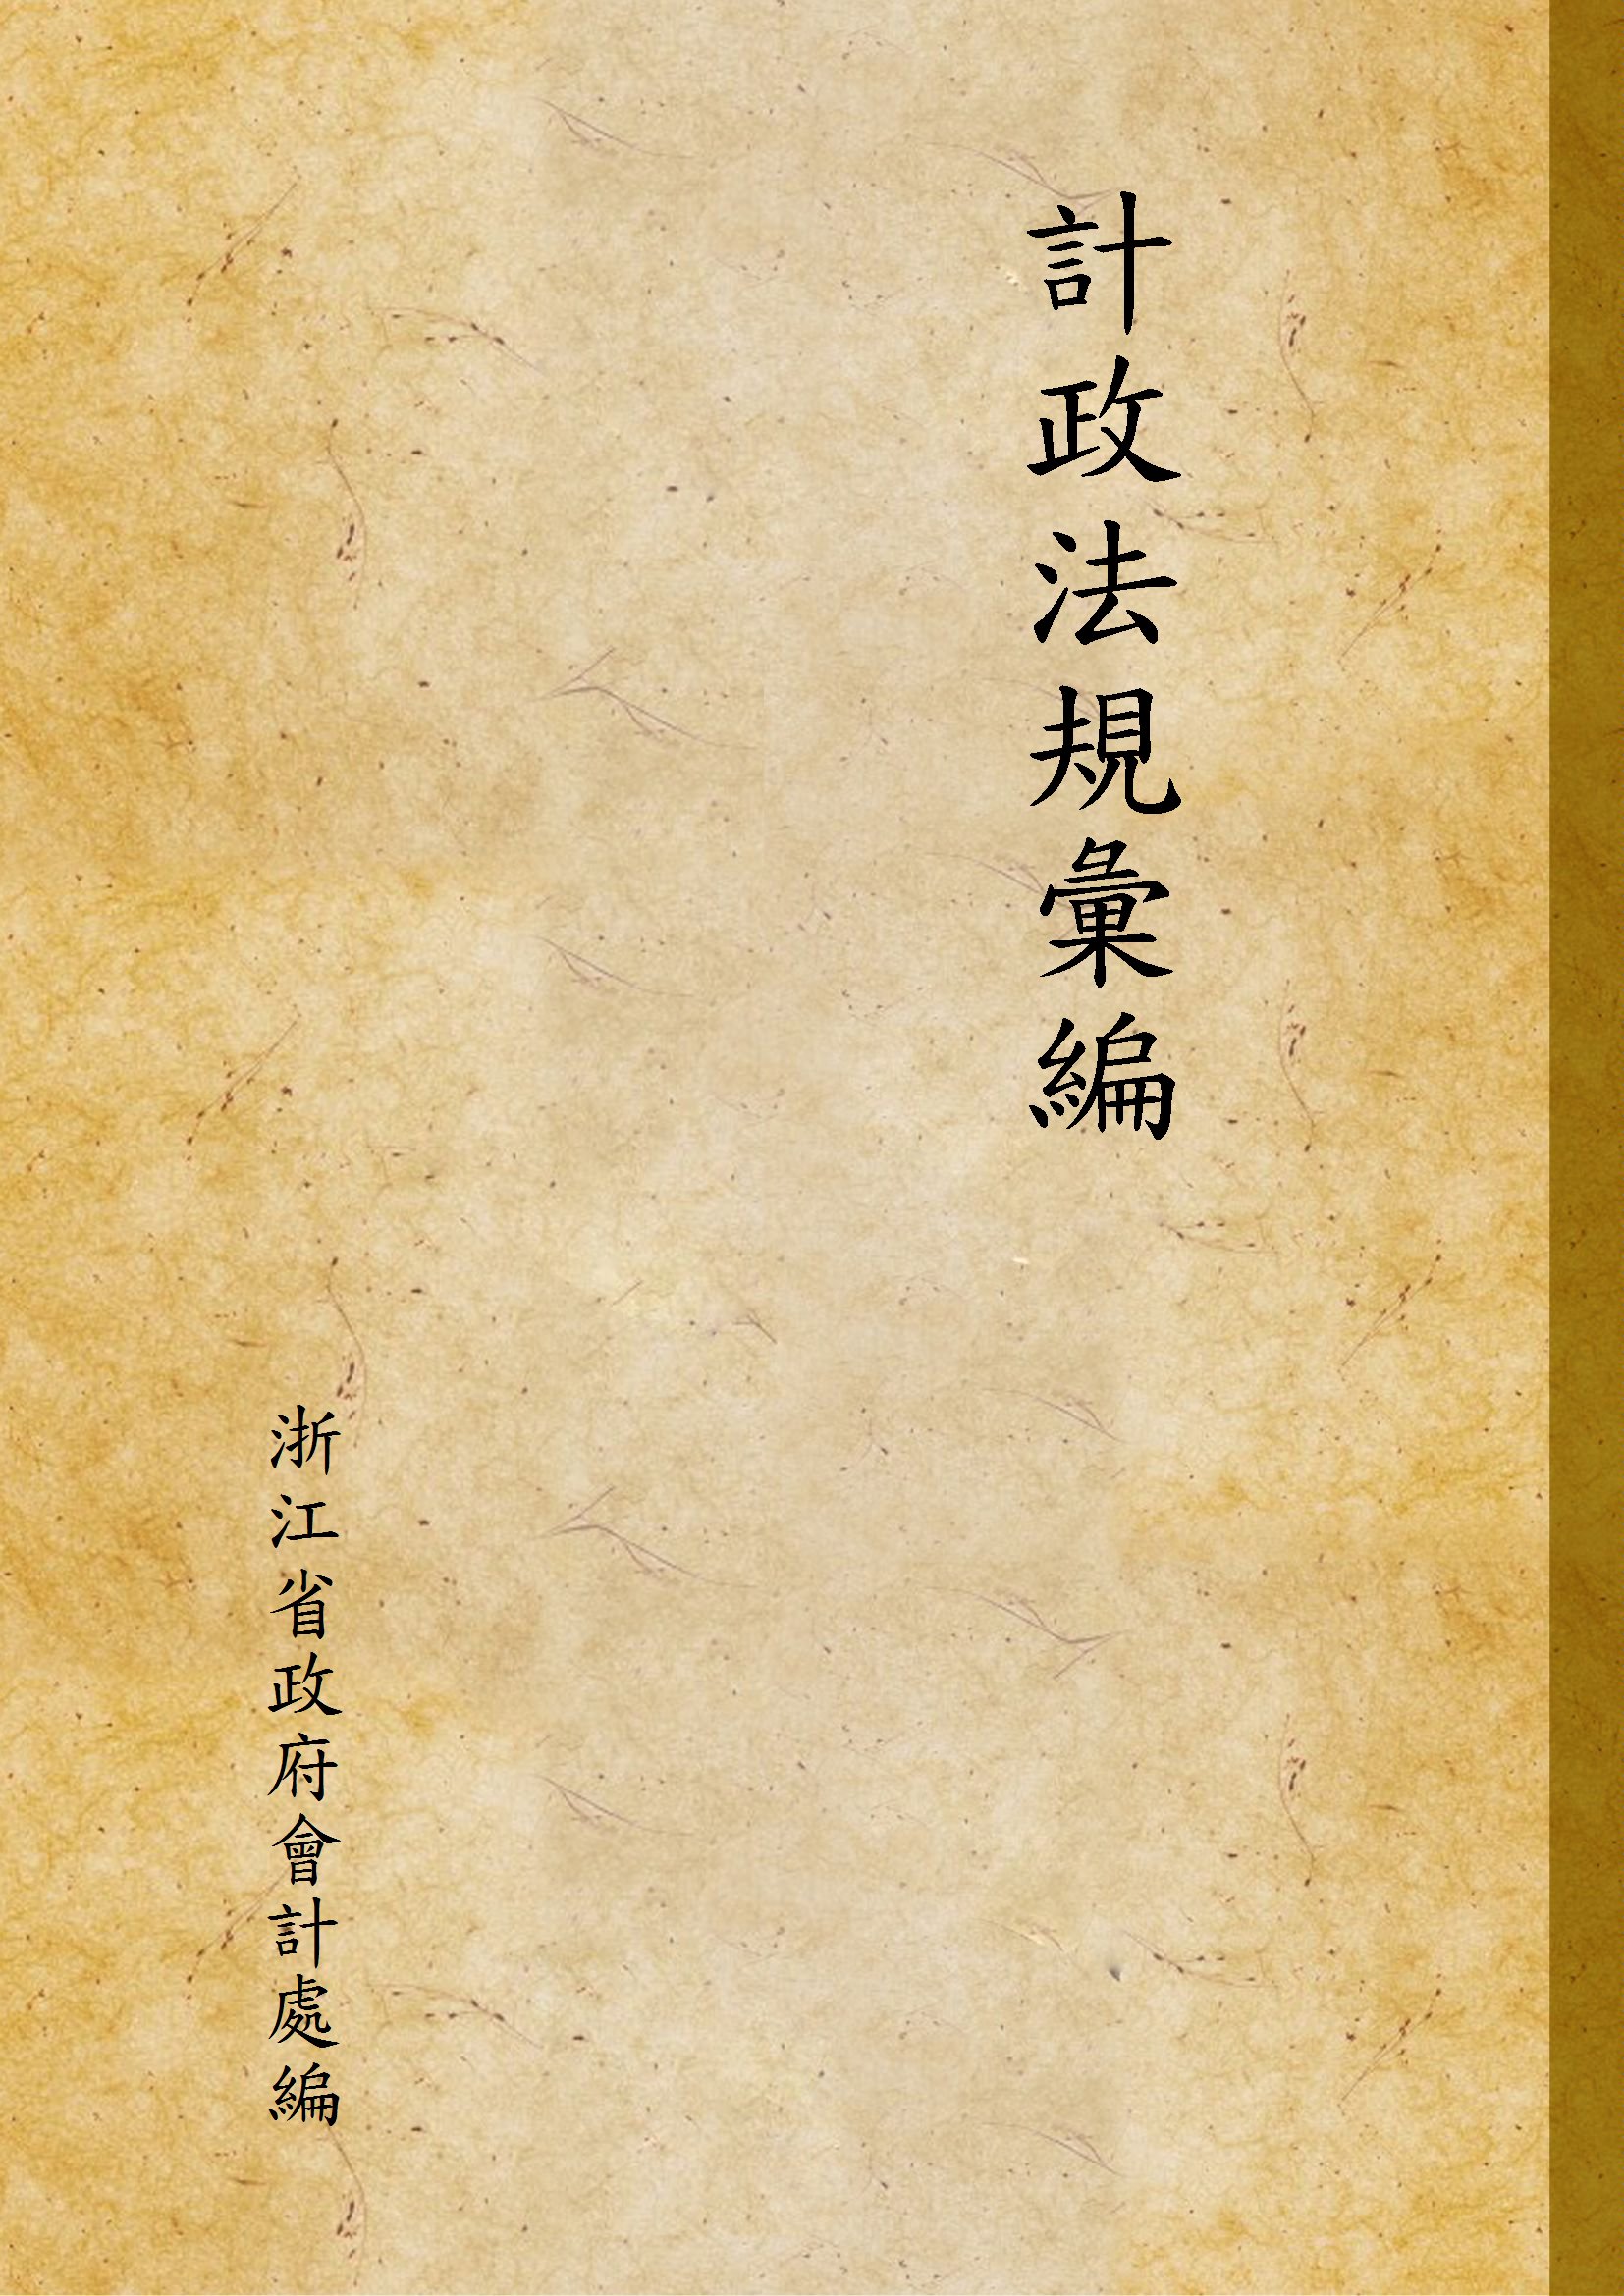 計政法規彙編
浙江省政府會計處編